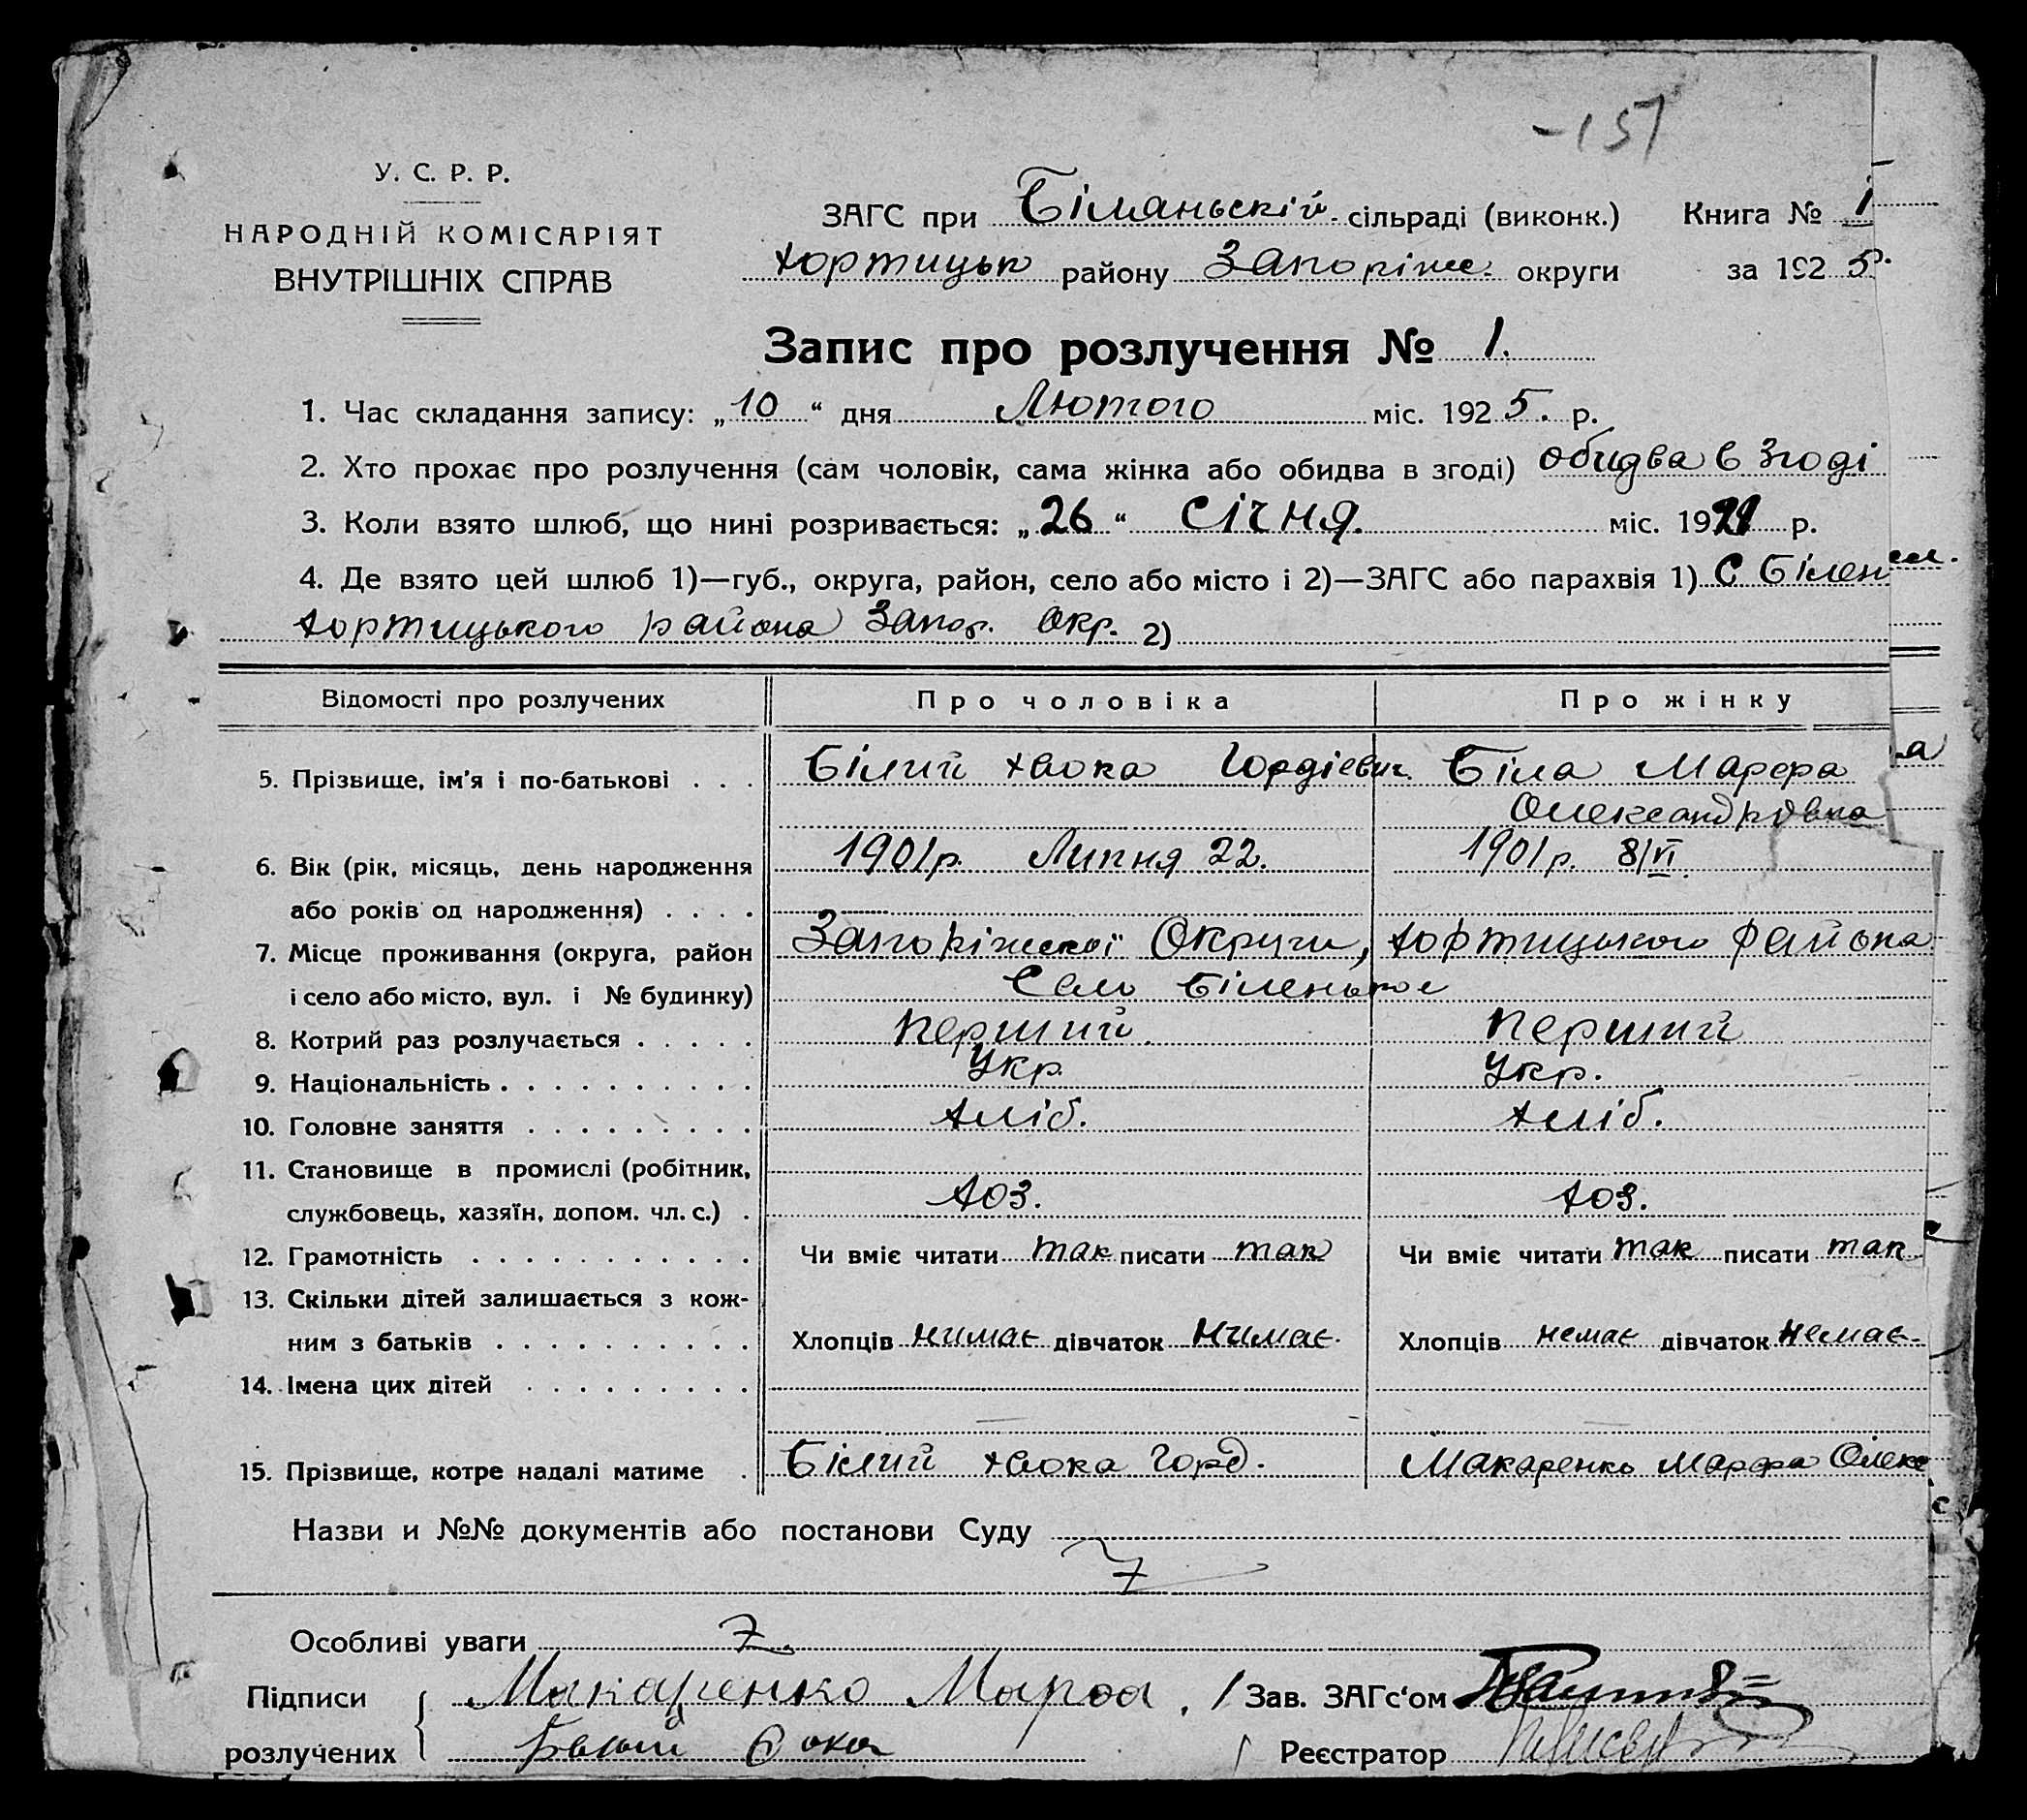 -157
У. С. Р. Р.
НАРОДНІЙ КОМІСАРІЯТ
ВНУТРІШНІХ СПРАВ
ЗАГС при Біманьскій сільраді (виконк.) Книга № 1
Хортицьк району Запоріже. округи за 1925р.
Запис про розлучення № 1.
1. Час складання запису: „10“ дня Лютого міс. 1925. р.
2. Хто прохає про розлучення (сам чоловік, сама жінка або обидва в згоді) обидва в згоді
3. Коли взято шлюб, що нині розривається: „26“ Січня. міс. 1921 р.
4. Де взято цей шлюб 1)—губ., округа, район, село або місто і 2)—ЗАГС або парахвія 1) С Білен
Хортицького района Запор. Окр. 2)
Відомості про розлучених Про чоловіка Про жінку
5. Прізвище, ім'я і по-батькові . . . Білий Хвока Гордіевич. Біла Марфа
Олександрівна
6. Вік (рік, місяць, день народження 1901р. Липня 22. 1901р. 8/VI
або років од народження) . . . .
7. Місце проживання (округа, район Запоріжскої Округи, Хортицького района
і село або місто, вул. і № будинку) Село Біленькое
8. Котрий раз розлучається . . . . . Перший. Перший
9. Національність . . . . . . . . . . Укр. Укр.
10. Головне заняття . . . . . . . . . Хліб. Хліб.
11. Становище в промислі (робітник,
службовець, хазяїн, допом. чл. с.) . Хоз. Хоз.
12. Грамотність . . . . . . . . . . . Чи вміє читати так писати так Чи вміє читати так писати так
13. Скільки дітей залишається з кож-
ним з батьків . . . . . . . . . . Хлопців нимає дівчаток нимає. Хлопців немає дівчаток немає
14. Імена цих дітей . . . . . . . . .
15. Прізвище, котре надалі матиме . Білий Хвока Горд. Макаренко Марфа Олекс
Назви и №№ документів або постанови Суду
Особливі уваги
Підписи Макаренко Марфа. Зав. ЗАГс‘ом
розлучених Білий Реєстратор